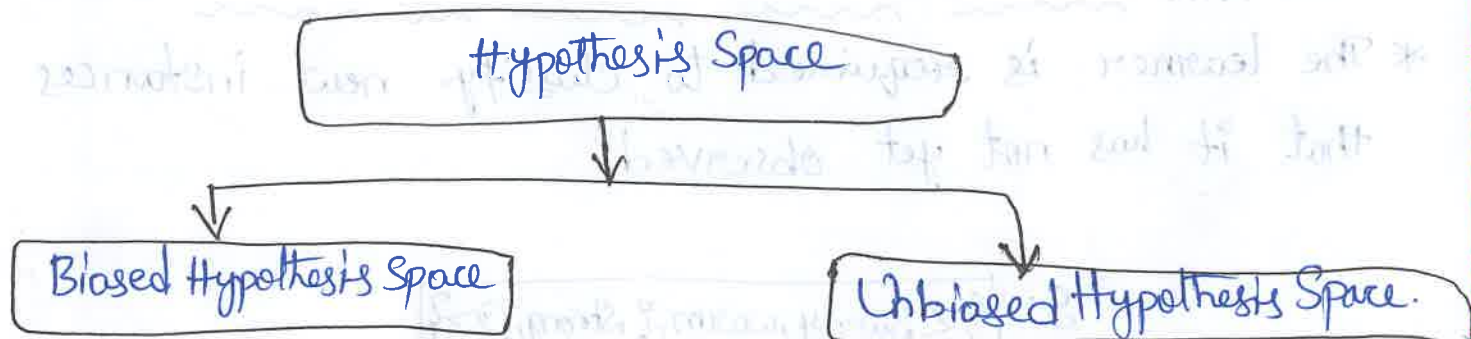 Hypothesis Space
Biased Hypothesis Space
Unbiased Hypothesis Space.